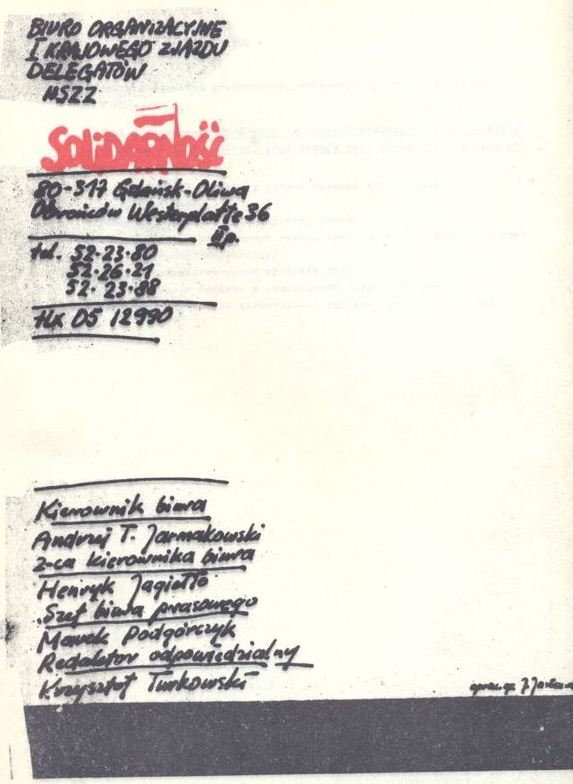 BIURO ORGANIZACYJNE
I KRAJOWEGO ZJAZDU
DELEGATÓW
NSZZ
SOLIDARNOŚĆ
80-317 Gdańsk-Oliwa
Obrońców Westerplatte 36
IIp.
tel. 52-23-80
52-26-21
52-23-88
tlx 05 12990
Kierownik biura
Andrzej T. Jarmakowski
z-ca kierownika biura
Henryk Jagiełło
Szef biura prasowego
Marek Podgórczyk
Redaktor odpowiedzialny
Krzysztof Turkowski